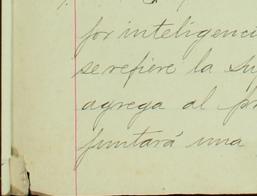 for inteligenci
se refiere la su
agrega al pr
juntará una